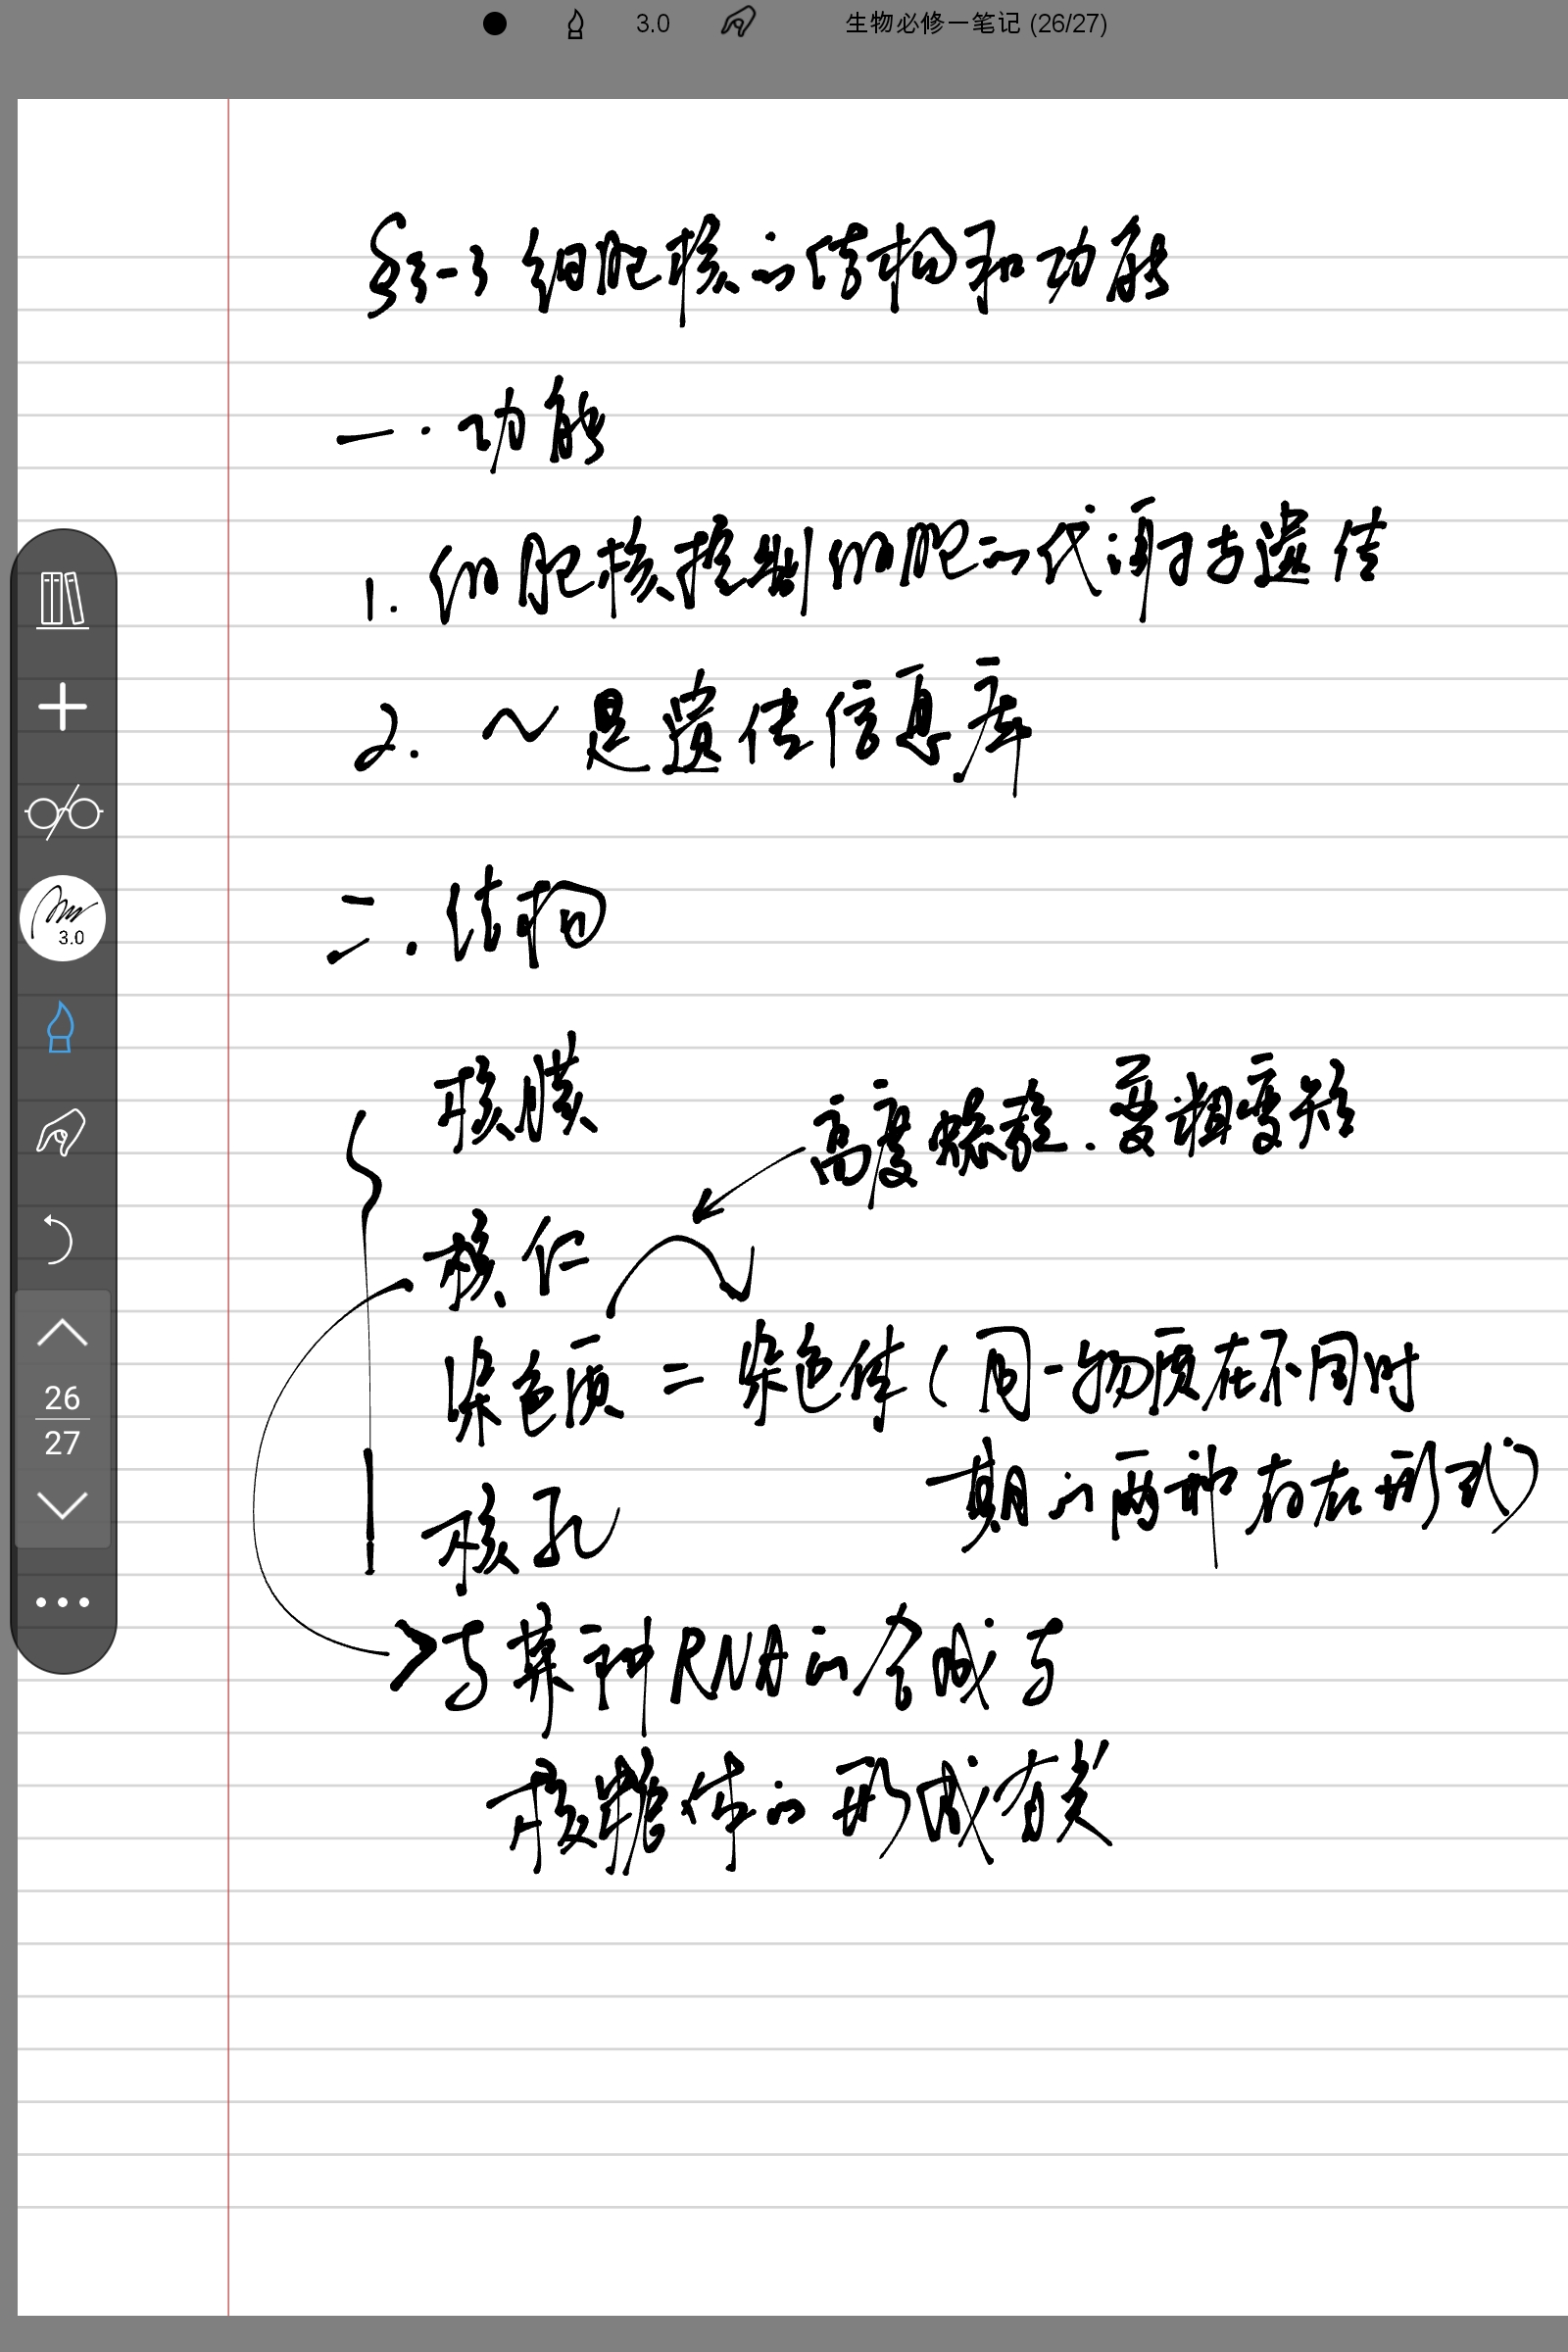 3.0 生物必修一笔记 (26/27)
§3-3 细胞核的结构和功能
一.功能
1. 细胞核控制细胞的代谢与遗传
2. ~是遗传信息库
二.结构
核膜
高度螺旋.变粗变短
核仁
染色质 = 染色体(同一物质在不同时
期的两种存在形式)
核孔
与某种RNA的合成与
核糖体的形成有关
3.0
26
27